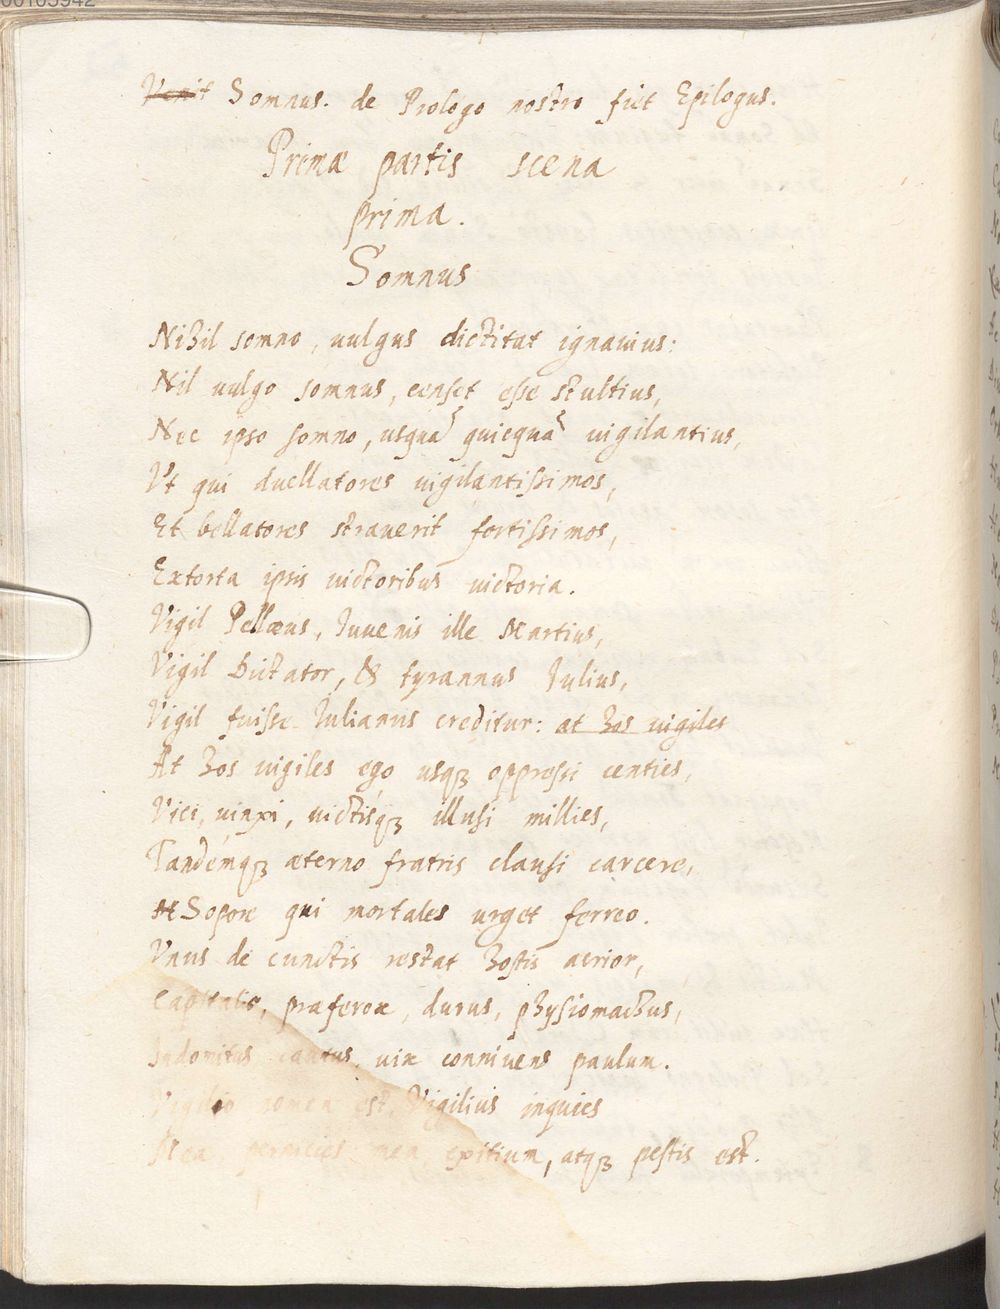 00105942
Venit Somnus. de Prologo nostro fiet Epilogus.
Primæ partis scena
prima.
Somnus
Nihil somno, uulgus dictitat ignauius:
Nil uulgo somnus, censet esse stultius,
Nec ipso somno, usquã quicquã uigilantius,
Vt qui duellatores uigilantissimos,
Et bellatores strauerit fortissimos,
Extorta ipsis uictoribus uictoria.
Vigil Pellæus, Iuuenis ille Martius,
Vigil Dictator, & tyrannus Iulius,
Vigil fuisse Iulianus creditur: at hos uigiles
At hos uigiles ego usqꝫ oppressi centies,
Vici, uinxi, uictisqꝫ illusi millies,
Tandémqꝫ æterno fratris clausi carcere,
Sopore qui mortales urget ferreo.
Vnus de cunctis restat hostis acrior,
Capitalis, præferox, durus, physiomachus,
Indomitus cautus, uix conniuens paulum.
Vigilio nomen est, Vigilius inquies
Mea pernicies, mea exitium, atqꝫ pestis est.